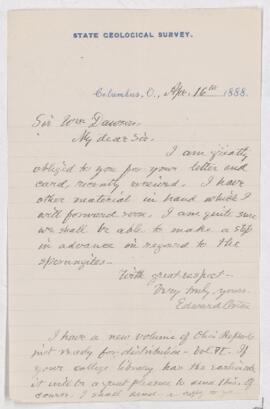 STATE GEOLOGICAL SURVEY.
Columbus, O., Apr. 16th 1888.
Sir Wm Dawson,
My dear Sir.
I am greatly
obliged to you for your letter and
card, recently received. I have
other material in hand which I
will forward soon. I am quite sure
we shall be able to make a step
in advance in regard to the
sporangites.
With great respect—
Very truly yours.
Edward Orton
I have a new volume of Ohio Reports
just ready for distribution – Vol. VI. If
your college library has the
it will be a great pleasure to send this. Of
course, I shall send a copy to